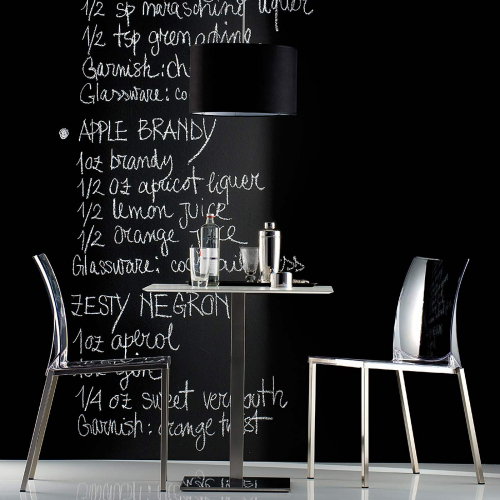 1/2 sp maraschino liquer
1/2 tsp grenadine
Garnish: ch
Glassware: co
APPLE BRANDY
1oz brandy
1/2 oz apricot liquer
1/2 lemon juice
1/2 orange juice
Glassware: co
ZESTY NEGRON
1oz aperol
1oz gin
1/4 oz sweet vermouth
Garnish: orange twist